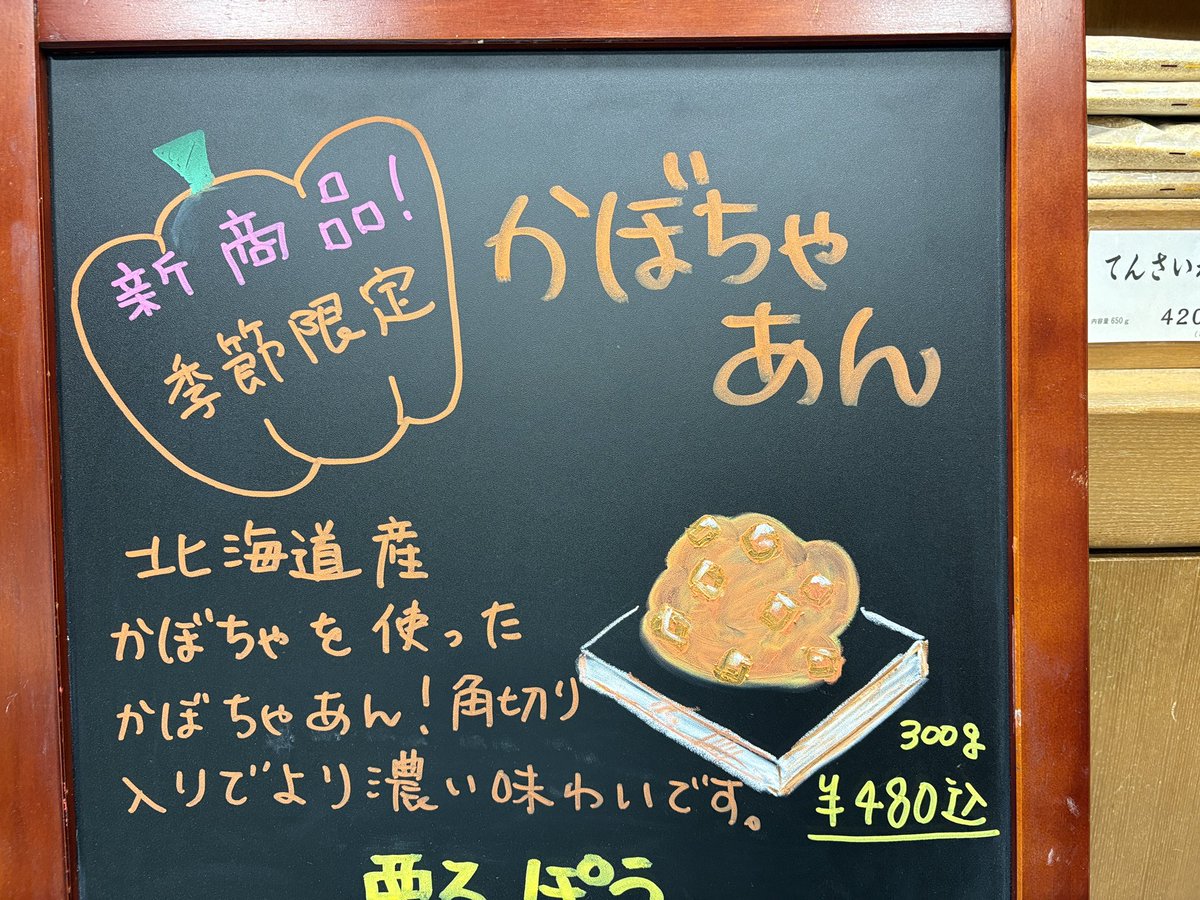 新商品!
季節限定
かぼちゃ
あん
北海道産
かぼちゃを使った
かぼちゃあん!角切り
入りでより濃い味わいです。
300g
¥480込
てんさい
内容量 650g
420